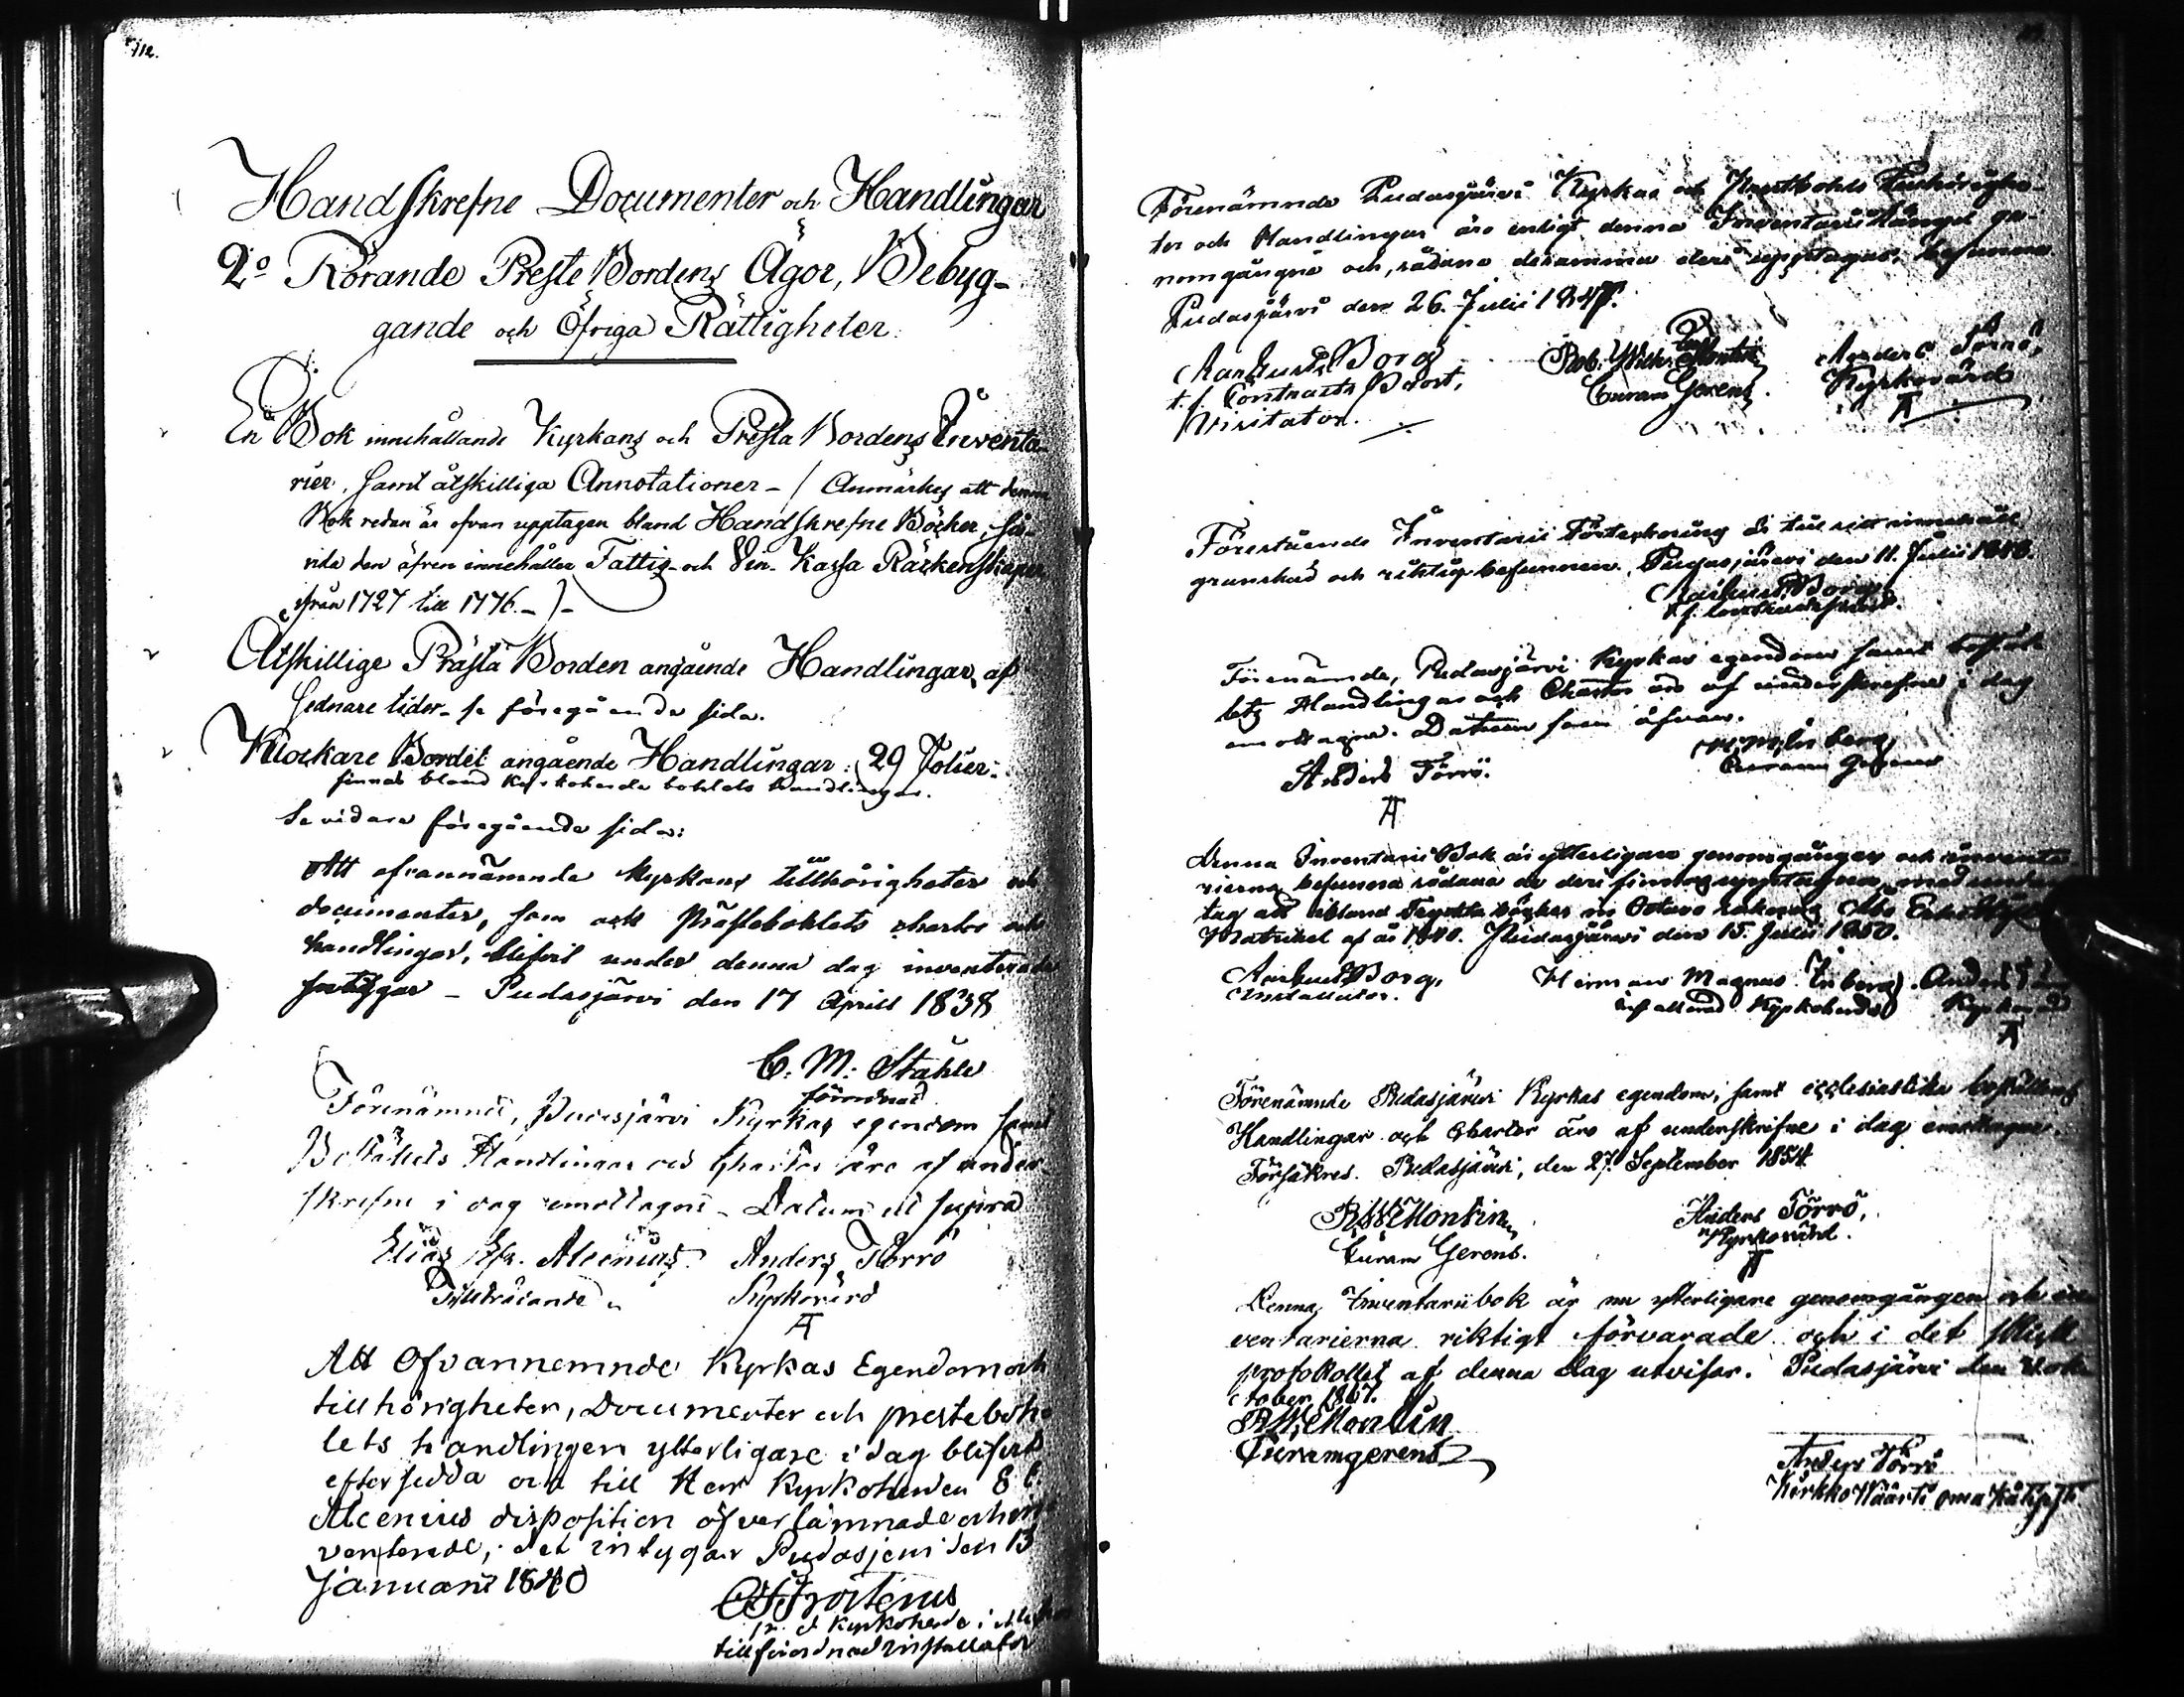 112.
Handskrefne Documenter och Handlingar
2o Rörande Preste Bordens Ägor, Bebyg-
gande och Öfriga Rättigheter.
En Bok innehållande Kyrkans och Presta Bordens Inventa-
rier, samt åtskilliga Annotationer - / Anmärkes att denna
Bok redan är ofvan upptagen bland Handskrefne Böcker, så-
vida den äfven innehåller Fattig- och Vin- Kassa Räkenskaper
ifrån 1727 till 1776. - ) -
Åtskillige Prästa Borden angående Handlingar, af
sednare tider - se föregående sida.
Klockare Bordet angående Handlingar: 29 Folier:
finnas bland Kyrkoherde bohlets handlingar.
Se vidare föregående sida:
Att ofvannämnde Kyrkans tillhörigheter och
documenter, som ock Prästebohlets chartor och
handlingar, blifvit under denna dag inventerade
intygar - Pudasjärvi den 17 April 1838
C. M. Ståhle
förordnad
Förenämnde, Pudasjärvi Kyrkas egendom samt
Boställets Handlingar och Chartor äro af under
skrefne i dag emottagne - Datum ut supra
Elias Alcenius Anders Törrö
Tillträdande Kyrkovärd
Att Ofvannemnde Kyrkas Egendom och
tillhörigheter, Documenter och presteboh-
lets handlingen ytterligare i dag blifvit
eftersedda och till Herr Kyrkoherden E E
Alcenius disposition öfverlämnade och in
venterade; det intygar Pudasjervi den 13
Januarii 1840
Frosterus
Kyrkoherde i
tillförordnad installator
Förenämnde Pudasjärvi Kyrkas och Prestbohls Tillhörighe-
ter och Handlingar äro enligt denna Inventarii Längd ge-
nomgångne och, sådana desamma deri upptagas, befunne
Pudasjärvi den 26. Julii 1847.
Borg Rob. Wilh. Montin Anders Törrö
t. f. Contracts Prost, Curam Gerens. Kyrkovärd
Visitator.
Förestående Inventarii Förteckning är till sitt innehåll
granskad och riktig befunnen. Pudasjärvi den 11. Julii 1848.
Borg
t. f. Contractsprost.
Förenämnde, Pudasjärvi Kyrkas egendom samt bostäl-
lets Handlingar och Chartor äro af underskrefne i dag
emottagne. Datum som ofvan.
Anders Törrö.
Curam Gerens
Denna Inventarii Bok är ytterligare genomgången och inventa-
rierna befunna sådana de deri finnas upptagna, med undan-
tag att ibland Tryckta böcker in Octavo saknas Åbo
Matrikel af år 1840. Pudasjärvi den 15. Julii 1850.
Borg, Herman Magnus Enberg. Anders
Installator. installerad Kyrkoherde Kyrkovärd
Förenämnde Pudasjärvi Kyrkas egendom, samt ecclesiastika boställets
Handlingar och Chartor äro af underskrifne i dag emottagne.
Försäkres. Pudasjärvi, den 27. September 1854
R W Montin, Anders Törrö,
Curam Gerens. Kyrkovärd.
Denna Inventariibok är nu ytterligare genomgången och in
ventarierna riktigt förvarade och i det skick
protokollet af denna dag utvisar. Pudasjärvi den
ctober 1867.
R. W. Montin
Curamgerens
Anders Törrö
Kirkko Väärti oma kätisesti